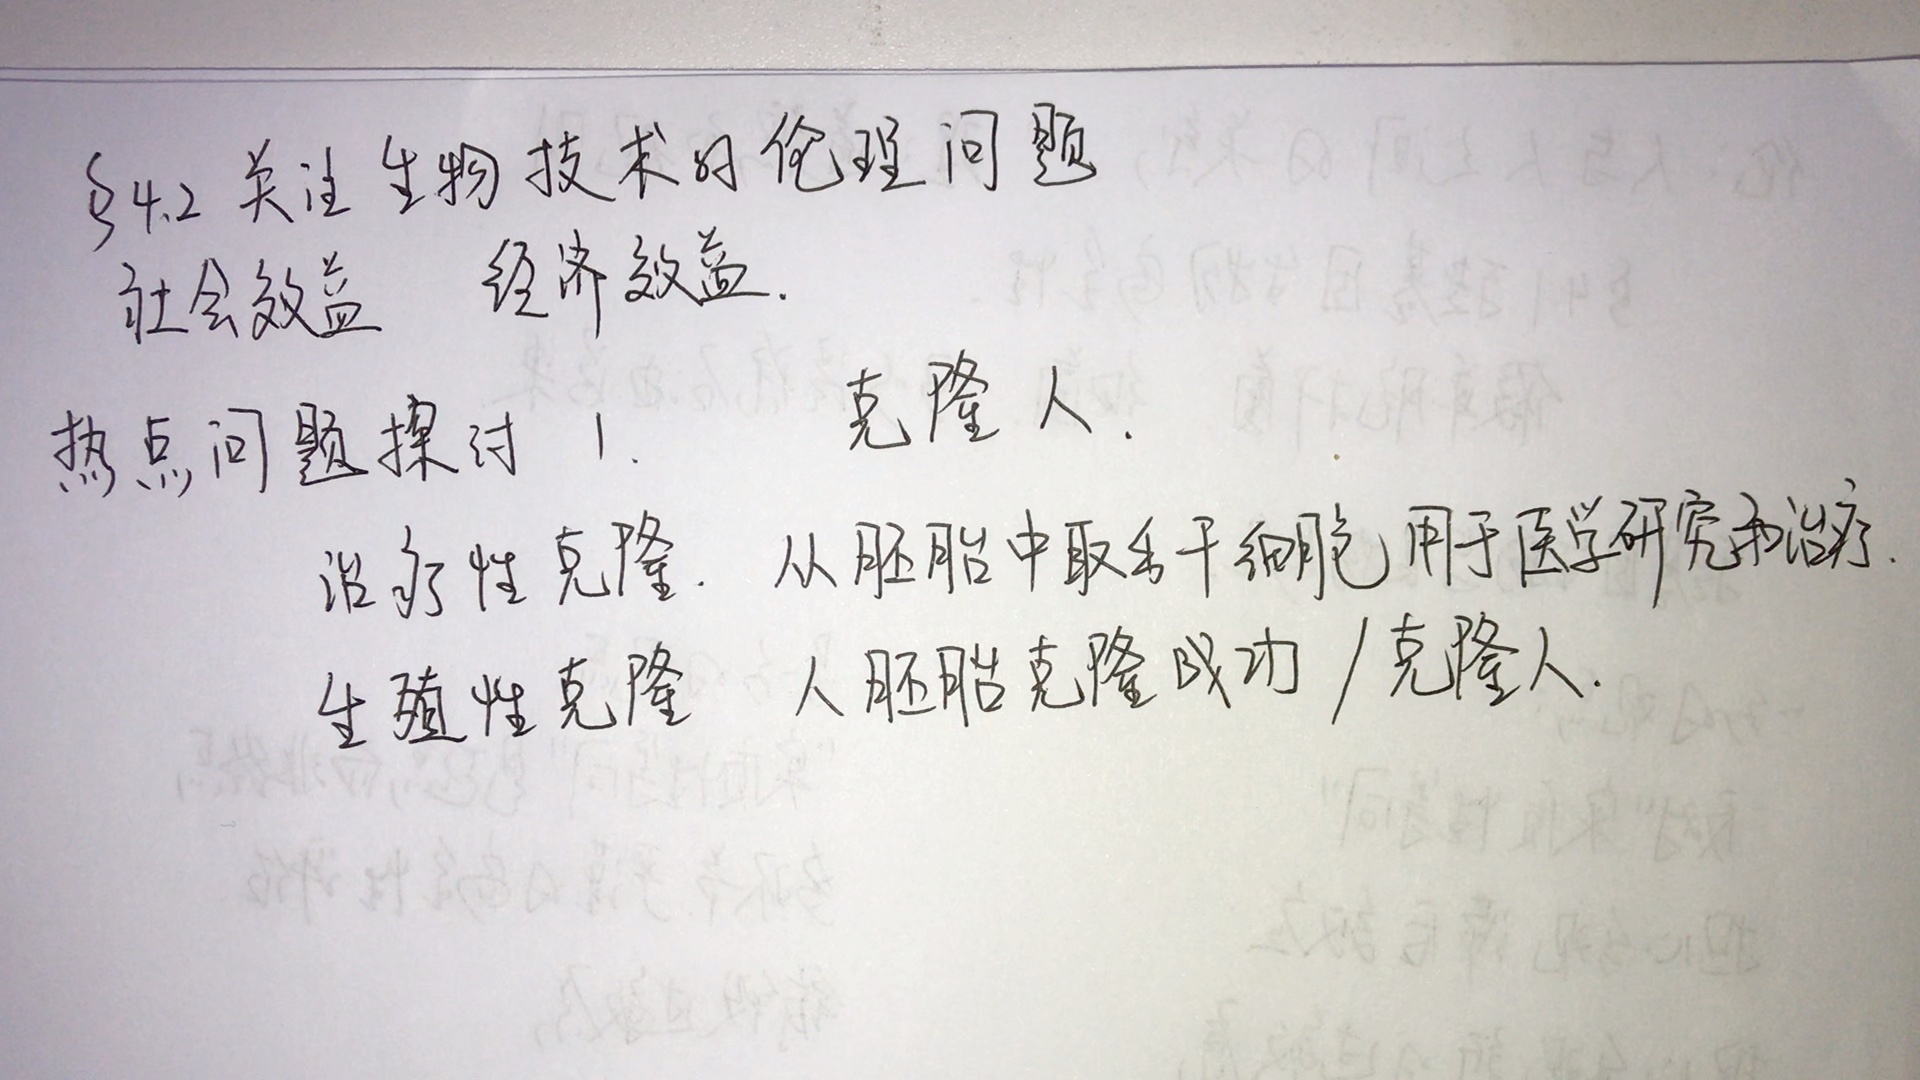 §4.2 关注生物技术的伦理问题
社会效益 经济效益.
热点问题探讨 1. 克隆人.
治疗性克隆. 从胚胎中取干细胞用于医学研究和治疗.
生殖性克隆 人胚胎克隆成功/克隆人.